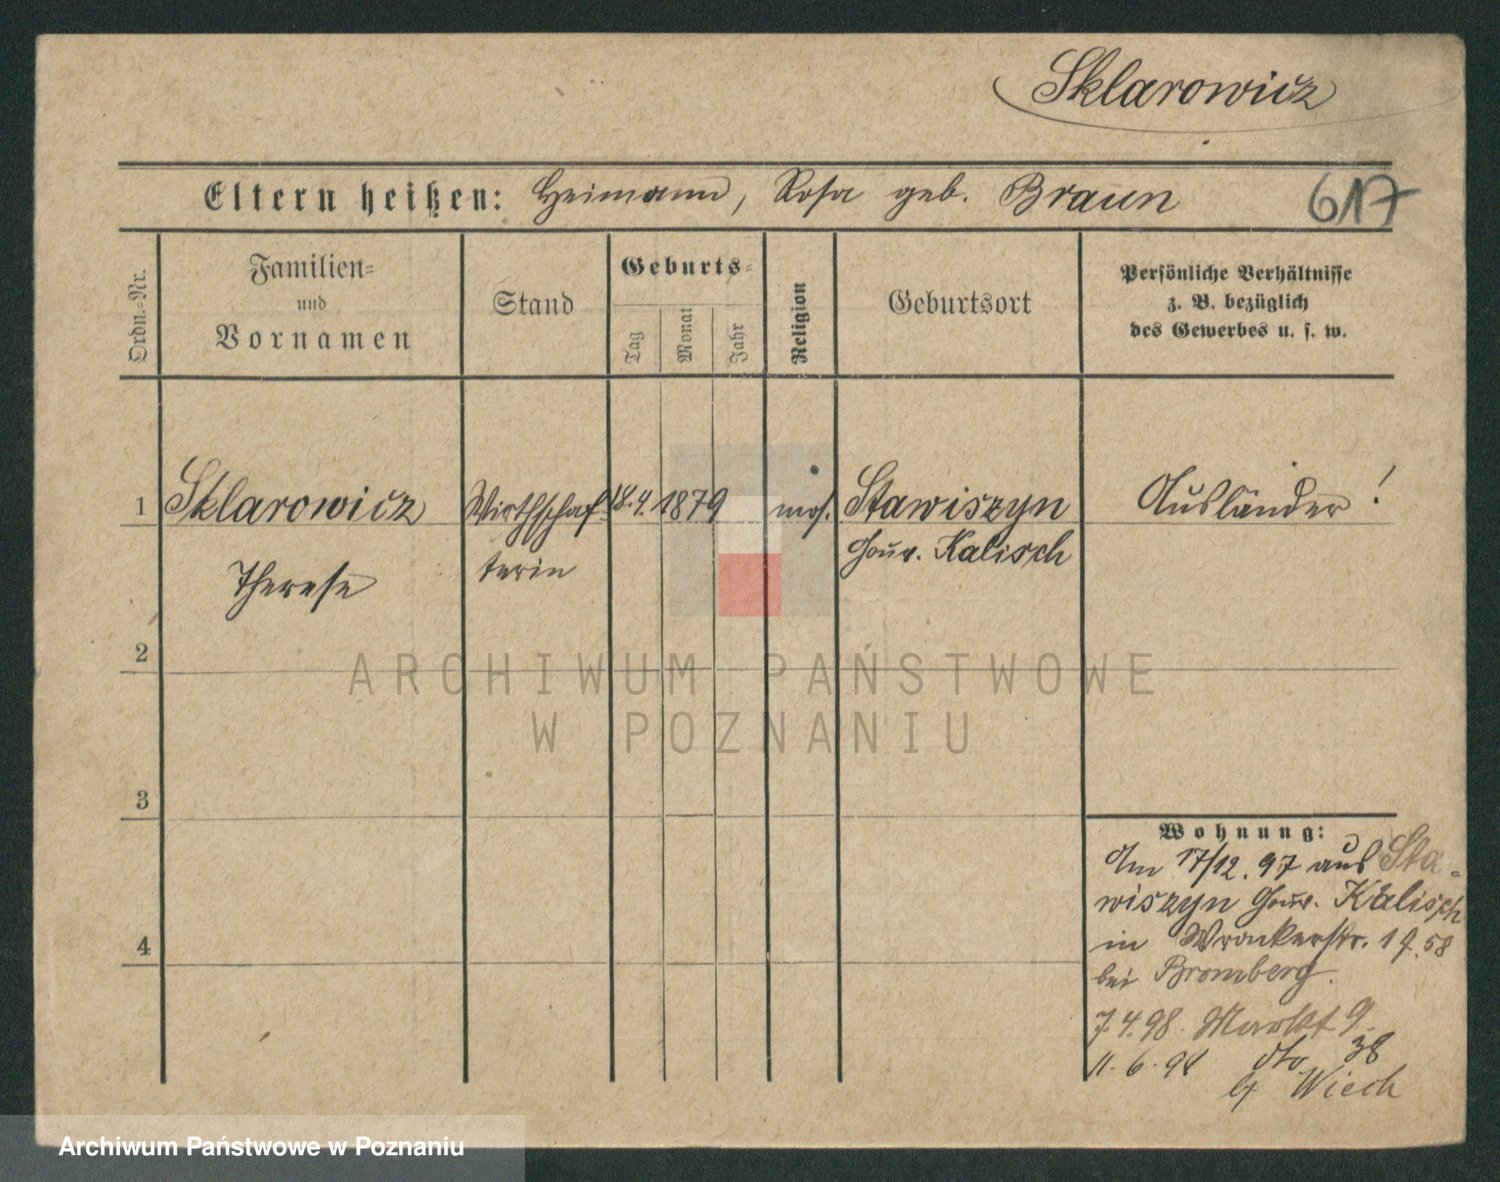 Sklarowicz
Eltern heißen: Heimann, Rosa geb. Braun
617
Ordn.-Nr.
Familien-
und
Vornamen
Stand
Geburts-
Tag
Monat
Jahr
Religion
Geburtsort
Persönliche Verhältnisse
z. B. bezüglich
des Gewerbes u. s. w.
1 Sklarowicz Wirthschaf- 18.4. 1879 mos. Stawiszyn Ausländer!
Therese terin Gouv. Kalisch
2
3
4
Wohnung:
Am 17/12. 97 aus Sta-
wiszyn Gouv. Kalisch
in Wronkerstr. 19. 58
bei Bromberg.
7.4.98. Markt 9.
11.6.98 dto 38
Wiech
ARCHIWUM PAŃSTWOWE
W POZNANIU
Archiwum Państwowe w Poznaniu